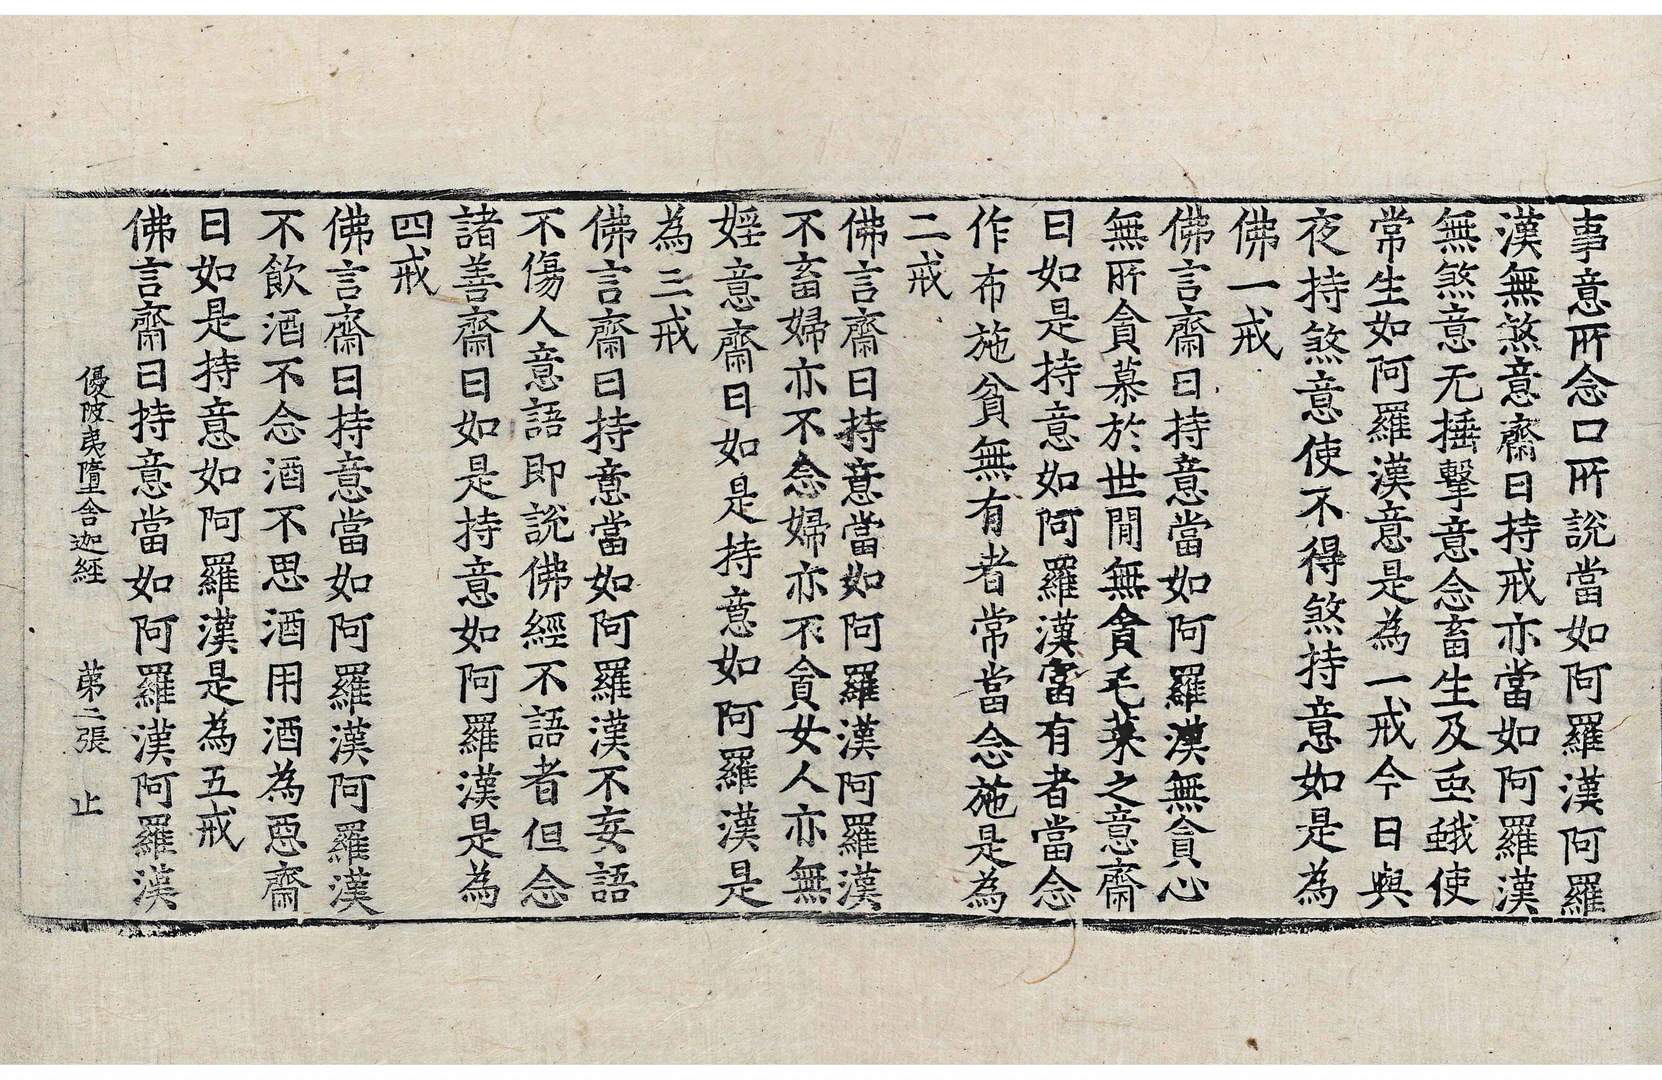 事意所念口所說當如阿羅漢阿羅
漢無煞意齋日持戒亦當如阿羅漢
無煞意无捶擊意念畜生及䖝蛾使
常生如阿羅漢意是為一戒今日與
夜持煞意使不得煞持意如是為
佛一戒
佛言齋日持意當如阿羅漢無貪心
無所貪慕於世閒無貪毛菜之意齋
日如是持意如阿羅漢富有者當念
作布施貧無有者常當念施是為
二戒
佛言齋日持意當如阿羅漢阿羅漢
不畜婦亦不念婦亦不貪女人亦無
婬意齋日如是持意如阿羅漢是
為三戒
佛言齋日持意當如阿羅漢不妄語
不傷人意語即說佛經不語者但念
諸善齋日如是持意如阿羅漢是為
四戒
佛言齋日持意當如阿羅漢阿羅漢
不飲酒不念酒不思酒用酒為惡齋
日如是持意如阿羅漢是為五戒
佛言齋日持意當如阿羅漢阿羅漢
優陂夷墮舍迦經 苐二張 止